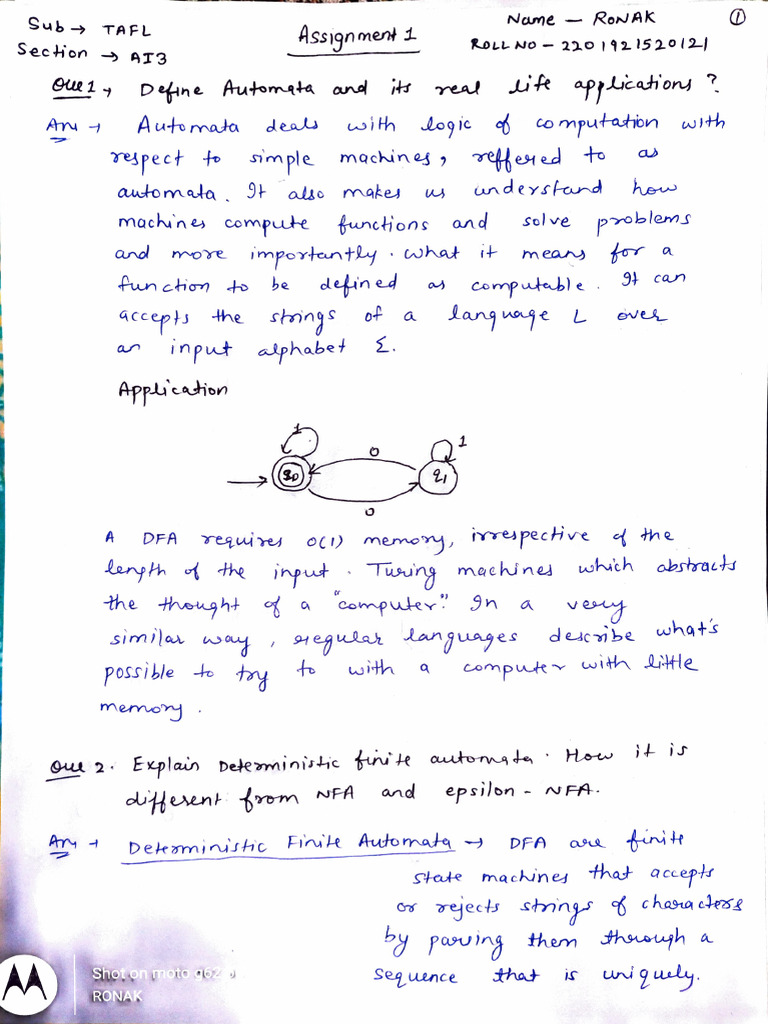 Sub → TAFL
Section → AI3
Assignment 1
Name – RONAK
ROLL NO – 2201921520121
1
Que 1 → Define Automata and its real life applications?
Ans → Automata deals with logic of computation with
respect to simple machines, reffered to as
automata. It also makes us understand how
machines compute functions and solve problems
and more importantly. what it means for a
function to be defined as computable. It can
accepts the strings of a language L over
an input alphabet Σ.
Application
1
q0
0
0
q1
1
A DFA requires O(1) memory, irrespective of the
length of the input. Turing machines which abstracts
the thought of a "computer." In a very
similar way, regular languages describe what's
possible to try to with a computer with little
memory.
Que 2. Explain Deterministic finite automata. How it is
different from NFA and epsilon - NFA.
Ans → Deterministic Finite Automata → DFA are finite
state machines that accepts
or rejects strings of characters
by parsing them through a
sequence that is uniquely.
Shot on moto g62 5G
RONAK